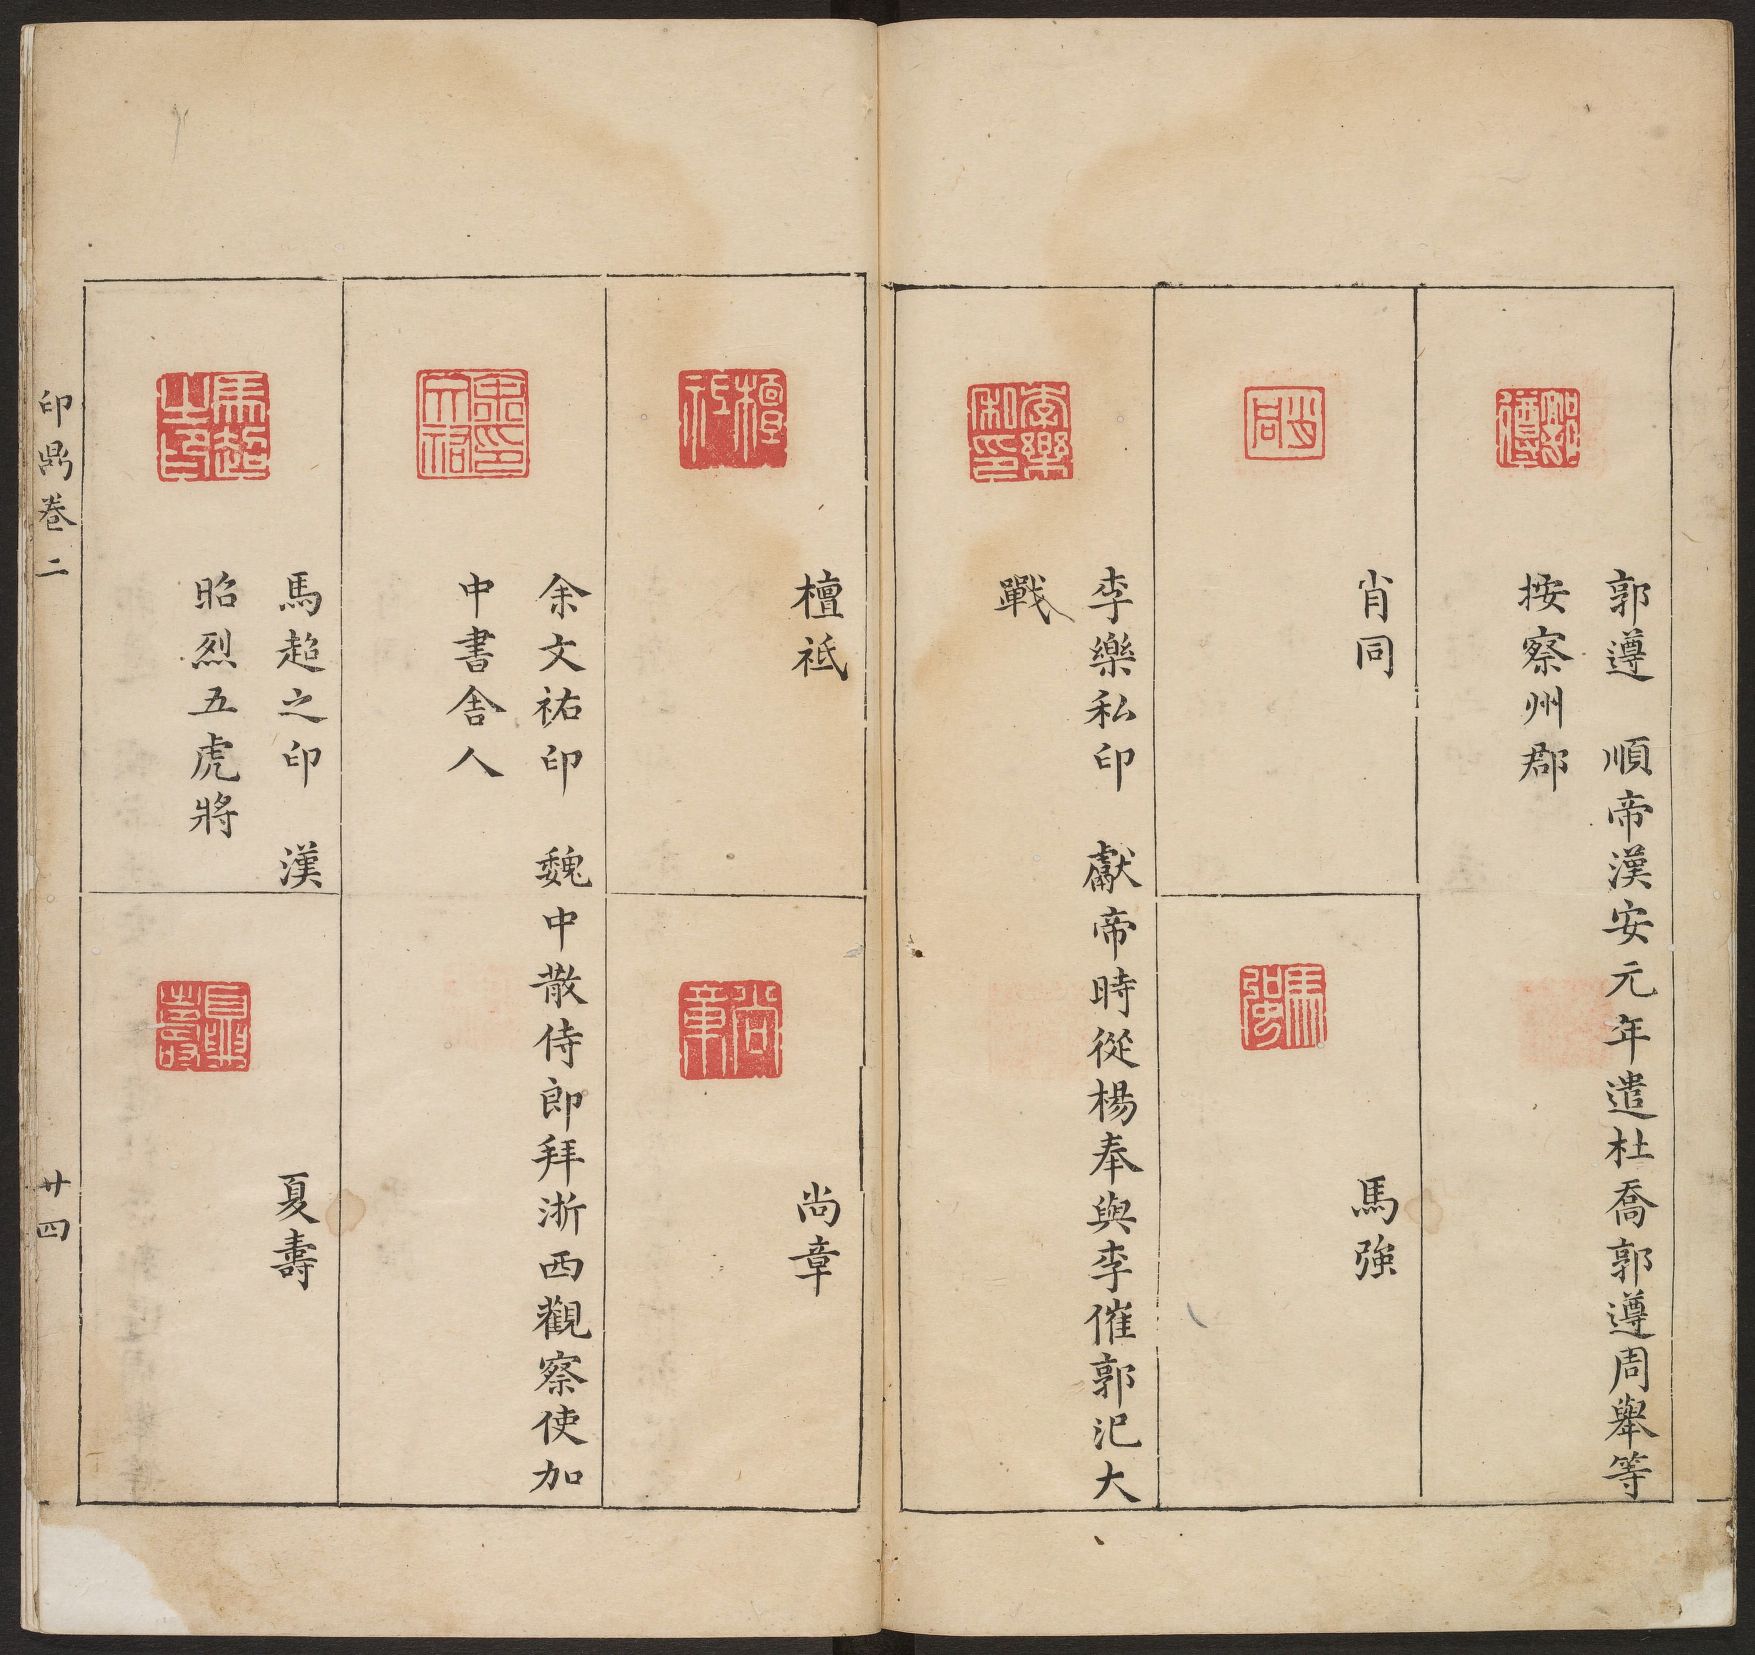 郭遵　順帝漢安元年遣杜喬郭遵周舉等
按察州郡
肖同
馬強
李樂私印　獻帝時從楊奉與李傕郭汜大
戰
檀祗
尚章
余文祐印　魏中散侍郎拜浙西觀察使加
中書舍人
馬超之印　漢
昭烈五虎將
夏壽
印鼎卷二
廿四